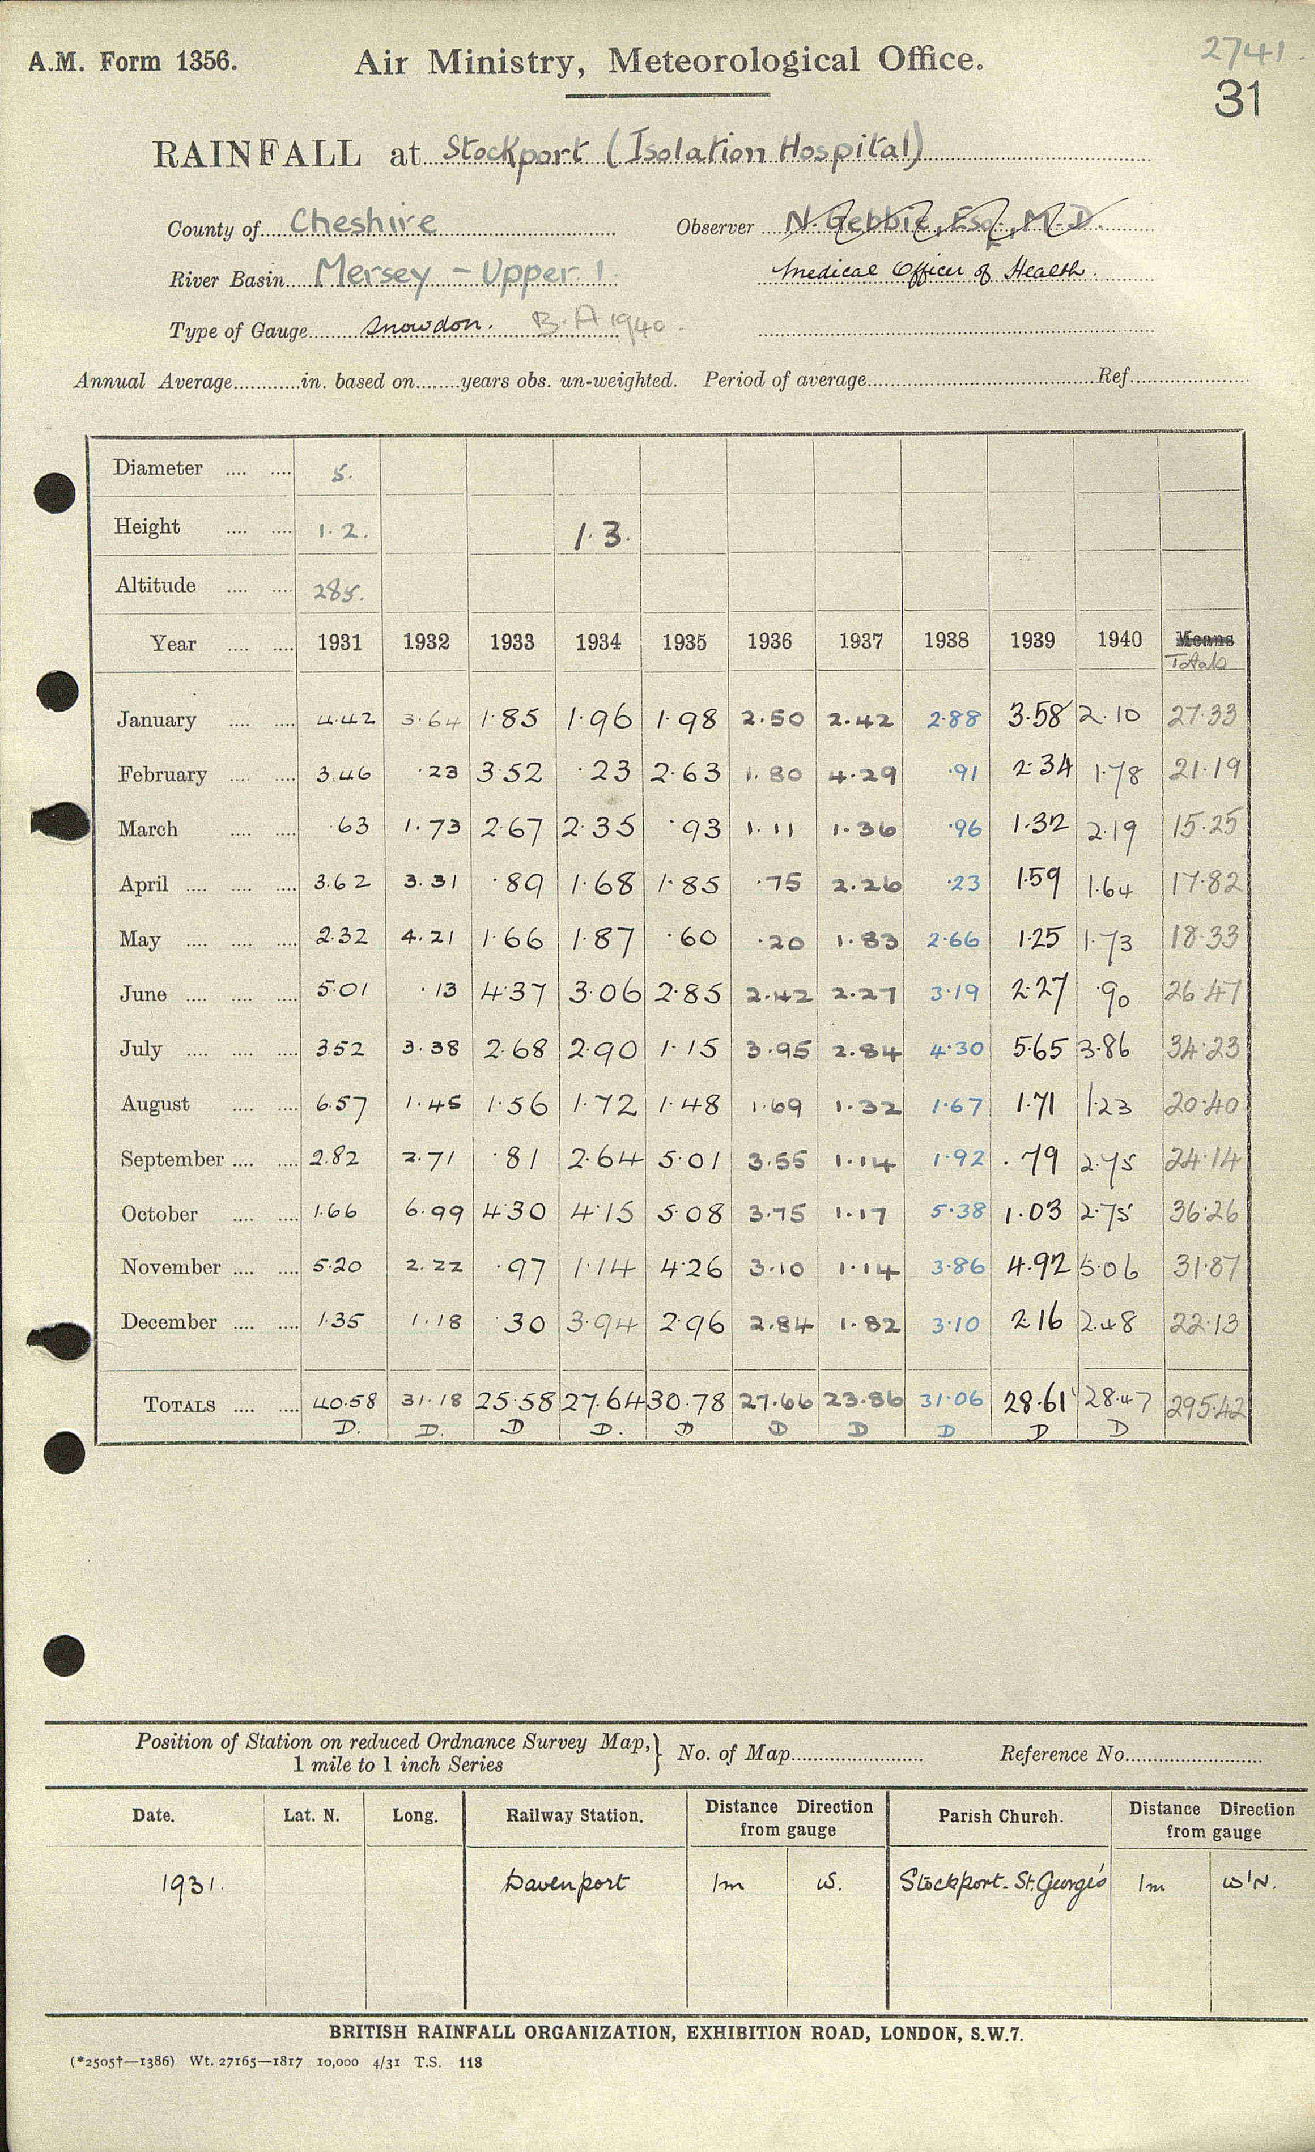 2741.
A.M. Form 1356. Air Ministry, Meteorological Office.
31
RAINFALL at Stockport (Isolation Hospital)
County of Cheshire Observer N. Gebbie, Esq., M.D.
River Basin Mersey - Upper. 1. Medical Officer of Health.
Type of Gauge Snowdon. B.A 1940.
Annual Average............in. based on........years obs. un-weighted. Period of average........................................Ref....................
Diameter .... .... 5.
Height .... .... 1.2. 1.3.
Altitude .... .... 285.
Year .... .... 1931 1932 1933 1934 1935 1936 1937 1938 1939 1940 Means
Totals
January .... .... 4.42 3.64 1.85 1.96 1.98 2.50 2.42 2.88 3.58 2.10 27.33
February .... .... 3.46 .23 3.52 .23 2.63 1.80 4.29 .91 2.34 1.78 21.19
March .... .... .63 1.73 2.67 2.35 .93 1.11 1.36 .96 1.32 2.19 15.25
April .... .... .... 3.62 3.31 .89 1.68 1.85 .75 2.26 .23 1.59 1.64 17.82
May .... .... .... 2.32 4.21 1.66 1.87 .60 .20 1.83 2.66 1.25 1.73 18.33
June .... .... .... 5.01 .13 4.37 3.06 2.85 2.42 2.27 3.19 2.27 .90 26.47
July .... .... .... 3.52 3.38 2.68 2.90 1.15 3.95 2.84 4.30 5.65 3.86 34.23
August .... .... 6.57 1.45 1.56 1.72 1.48 1.69 1.32 1.67 1.71 1.23 20.40
September .... .... 2.82 2.71 .81 2.64 5.01 3.55 1.14 1.92 .79 2.75 24.14
October .... .... 1.66 6.99 4.30 4.15 5.08 3.75 1.17 5.38 1.03 2.75 36.26
November .... .... 5.20 2.22 .97 1.14 4.26 3.10 1.14 3.86 4.92 5.06 31.87
December .... .... 1.35 1.18 .30 3.94 2.96 2.84 1.82 3.10 2.16 2.48 22.13
TOTALS .... .... 40.58 31.18 25.58 27.64 30.78 27.66 23.86 31.06 28.61 28.47 295.42
D. D. D D. D D D D D D
Position of Station on reduced Ordnance Survey Map, } No. of Map........................ Reference No.........................
1 mile to 1 inch Series
Date. Lat. N. Long. Railway Station. Distance Direction Parish Church. Distance Direction
from gauge from gauge
1931. Davenport 1m W. Stockport. St. George's 1m W'N.
BRITISH RAINFALL ORGANIZATION, EXHIBITION ROAD, LONDON, S.W.7.
(*2505†—1386) Wt. 27165—1817 10,000 4/31 T.S. 118